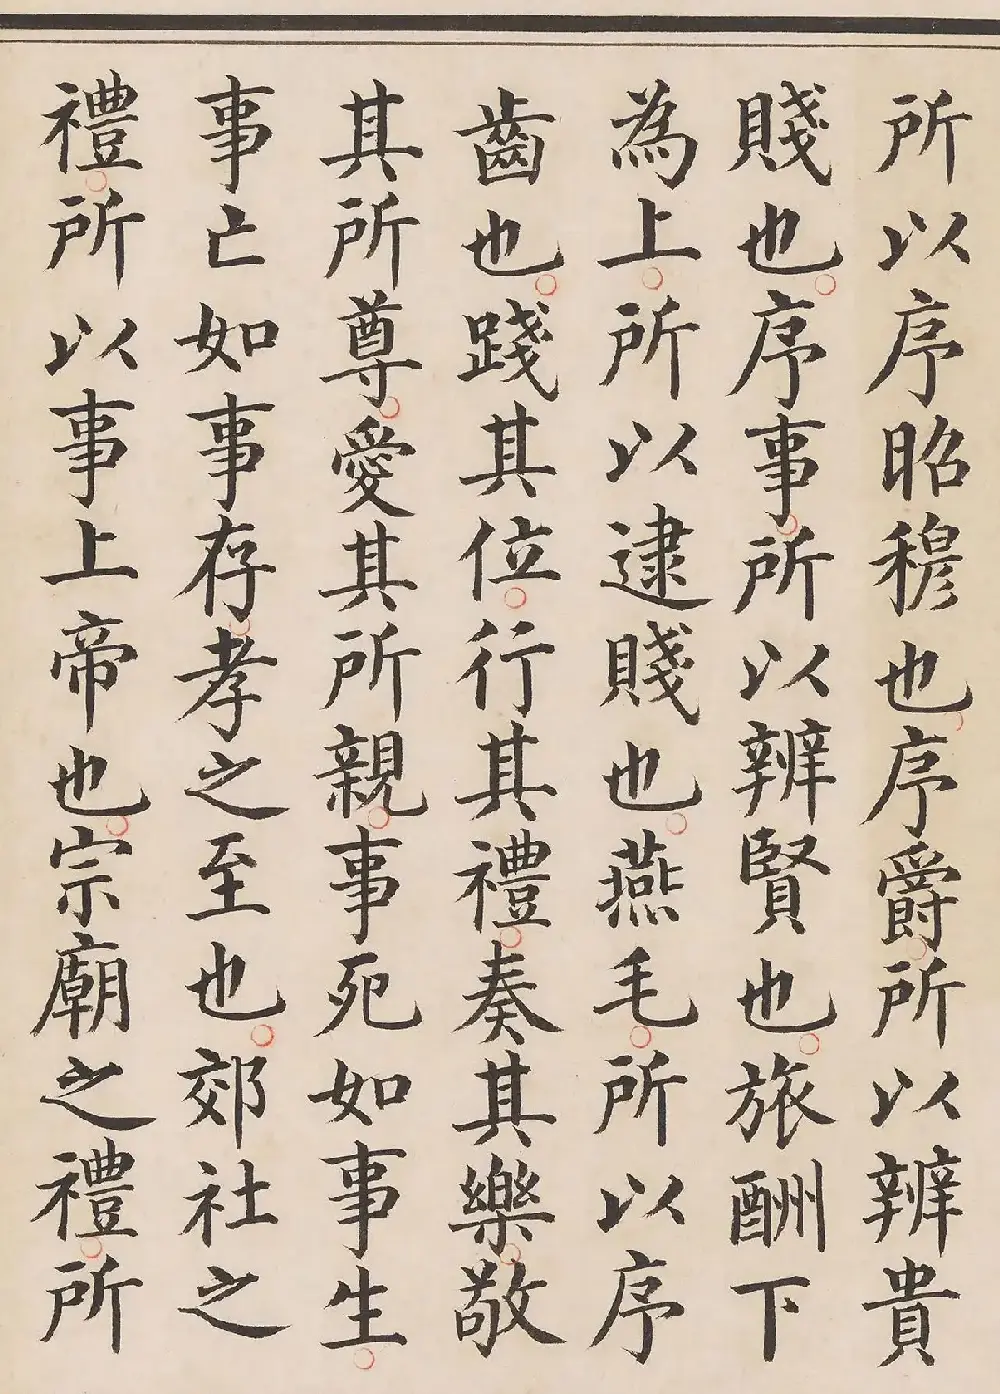 所以序昭穆也序爵所以辨貴
賤也序事所以辨賢也旅酬下
為上所以逮賤也燕毛所以序
齒也踐其位行其禮奏其樂敬
其所尊愛其所親事死如事生
事亡如事存孝之至也郊社之
禮所以事上帝也宗廟之禮所